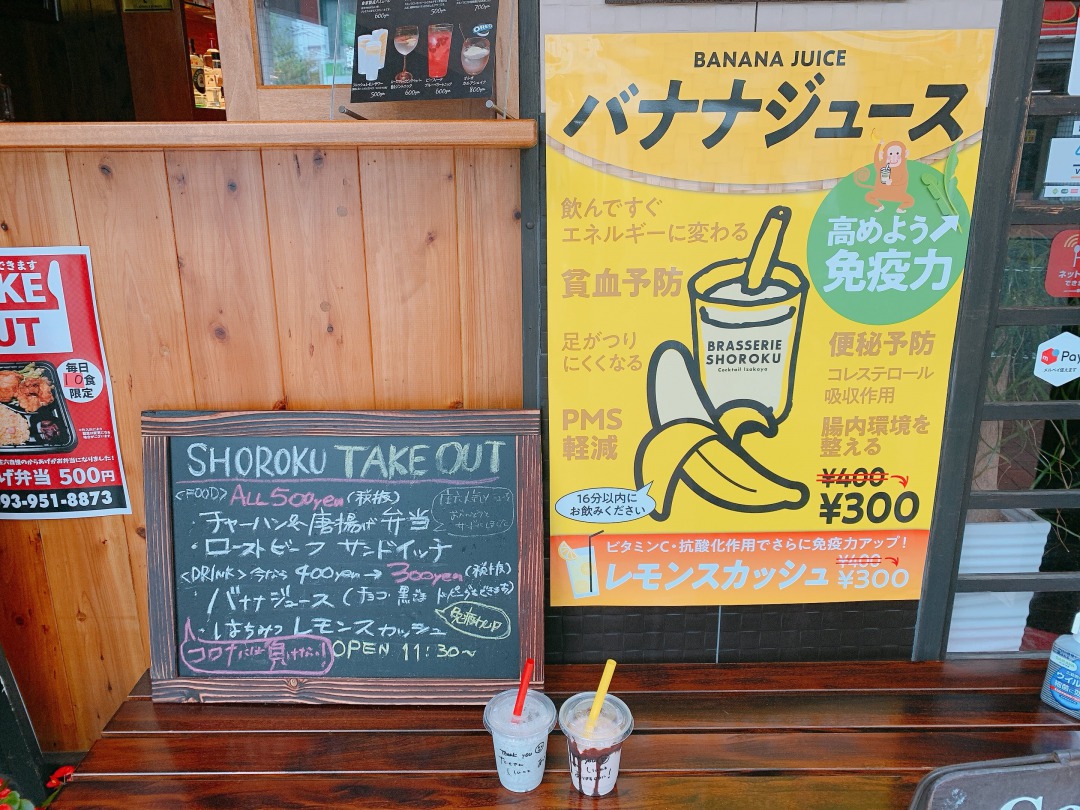 600yen
500yen
700yen
500yen
600yen
600yen
800yen
BANANA JUICE
バナナジュース
飲んですぐ
エネルギーに変わる
貧血予防
足がつり
にくくなる
PMS
軽減
高めよう
免疫力
BRASSERIE
SHOROKU
Cocktail Izakaya
便秘予防
コレステロール
吸収作用
腸内環境を
整える
¥400
¥300
16分以内に
お飲みください
ビタミンC・抗酸化作用でさらに免疫力アップ！
レモンスカッシュ
¥400
¥300
できます
KE
UT
毎日
10食
限定
げ弁当 500円
93-951-8873
SHOROKU TAKE OUT
<FOOD> ALL 500yen (税抜)
・チャーハン&唐揚げ弁当
・ローストビーフ サンドイッチ
<DRINK> 今なら 400yen → 300yen (税抜)
・バナナジュース (チョコ・黒ゴマ
・はちみつ レモンスカッシュ
免疫力UP
コロナには負けない！
OPEN 11:30~
Thank you
Pay
メルペイ使えます